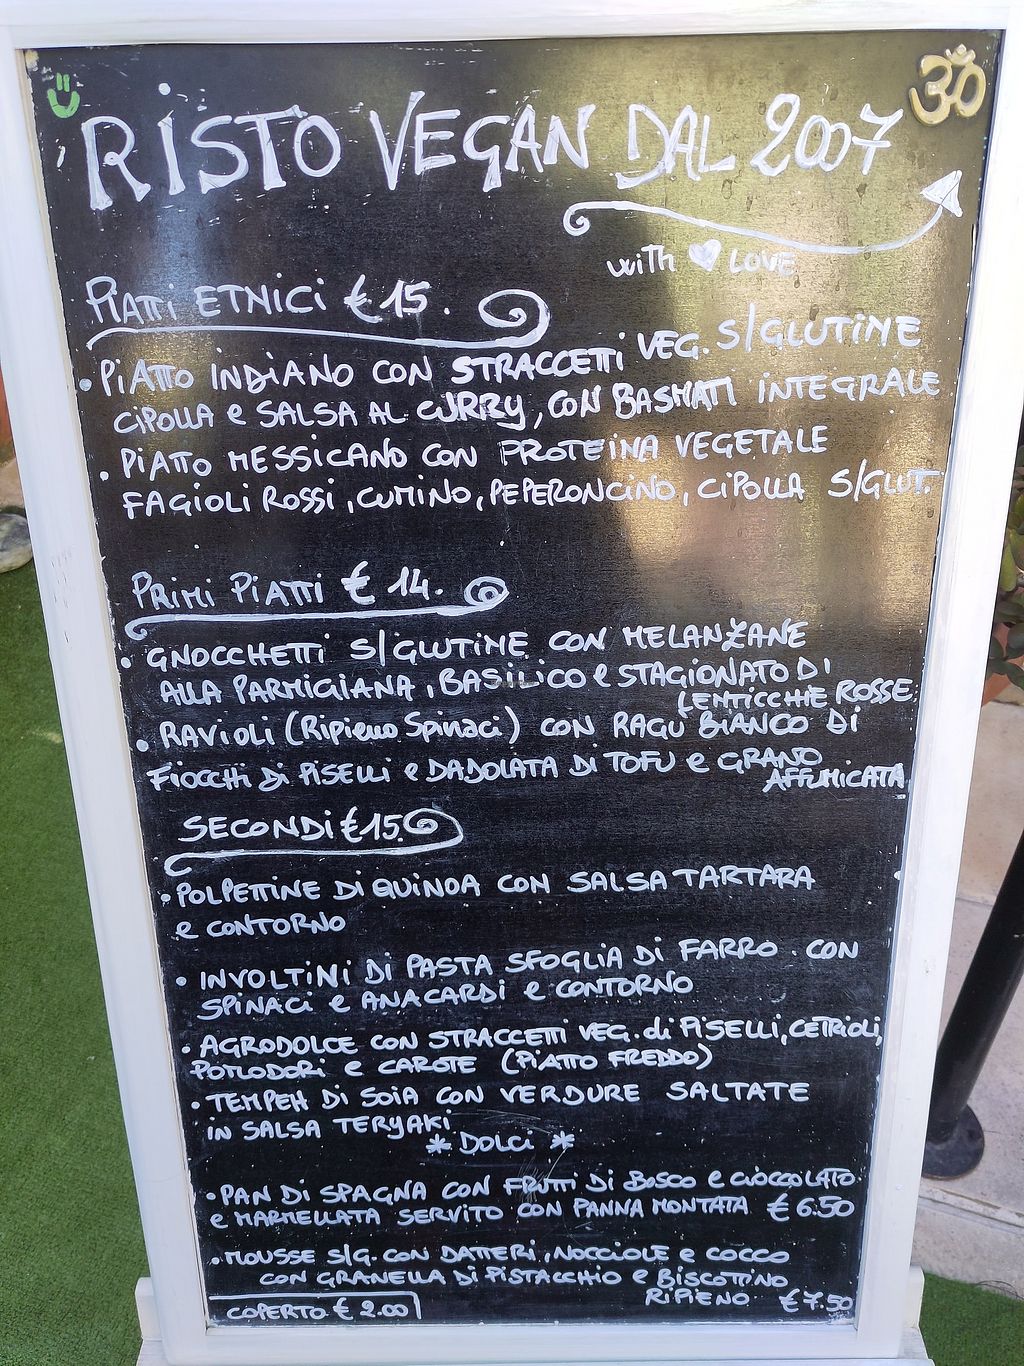 RISTO VEGAN DAL 2007
with LOVE
PIATTI ETNICI € 15.
• PIATTO INDIANO CON STRACCETTI VEG. S/GLUTINE
CIPOLLA e SALSA AL CURRY, CON BASMATI INTEGRALE
• PIATTO MESSICANO CON PROTEINA VEGETALE
FAGIOLI ROSSI, CUMINO, PEPERONCINO, CIPOLLA S/GLUT.
PRIMI PIATTI € 14.
• GNOCCHETTI S/GLUTINE CON MELANZANE
ALLA PARMIGIANA, BASILICO e STAGIONATO DI
LENTICCHIE ROSSE
• RAVIOLI (Ripieno Spinaci) CON RAGU BIANCO DI
FIOCCHI DI PISELLI e DADOLATA DI TOFU e GRANO
AFFUMICATA
SECONDI € 15.
• POLPETTINE DI QUINOA CON SALSA TARTARA
e CONTORNO
• INVOLTINI DI PASTA SFOGLIA DI FARRO. CON
SPINACI e ANACARDI e CONTORNO
• AGRODOLCE CON STRACCETTI VEG. di PISELLI, CETRIOLI,
POMODORI e CAROTE (PIATTO FREDDO)
• TEMPEH DI SOIA CON VERDURE SALTATE
IN SALSA TERYAKI
* DOLCI *
• PAN DI SPAGNA CON FRUTTI DI BOSCO e CIOCCOLATO
e MARMELLATA SERVITO CON PANNA MONTATA € 6.50
• MOUSSE S/G. CON DATTERI, NOCCIOLE e COCCO
CON GRANELLA DI PISTACCHIO e BISCOTTINO
RIPIENO € 7.50
COPERTO € 2.00